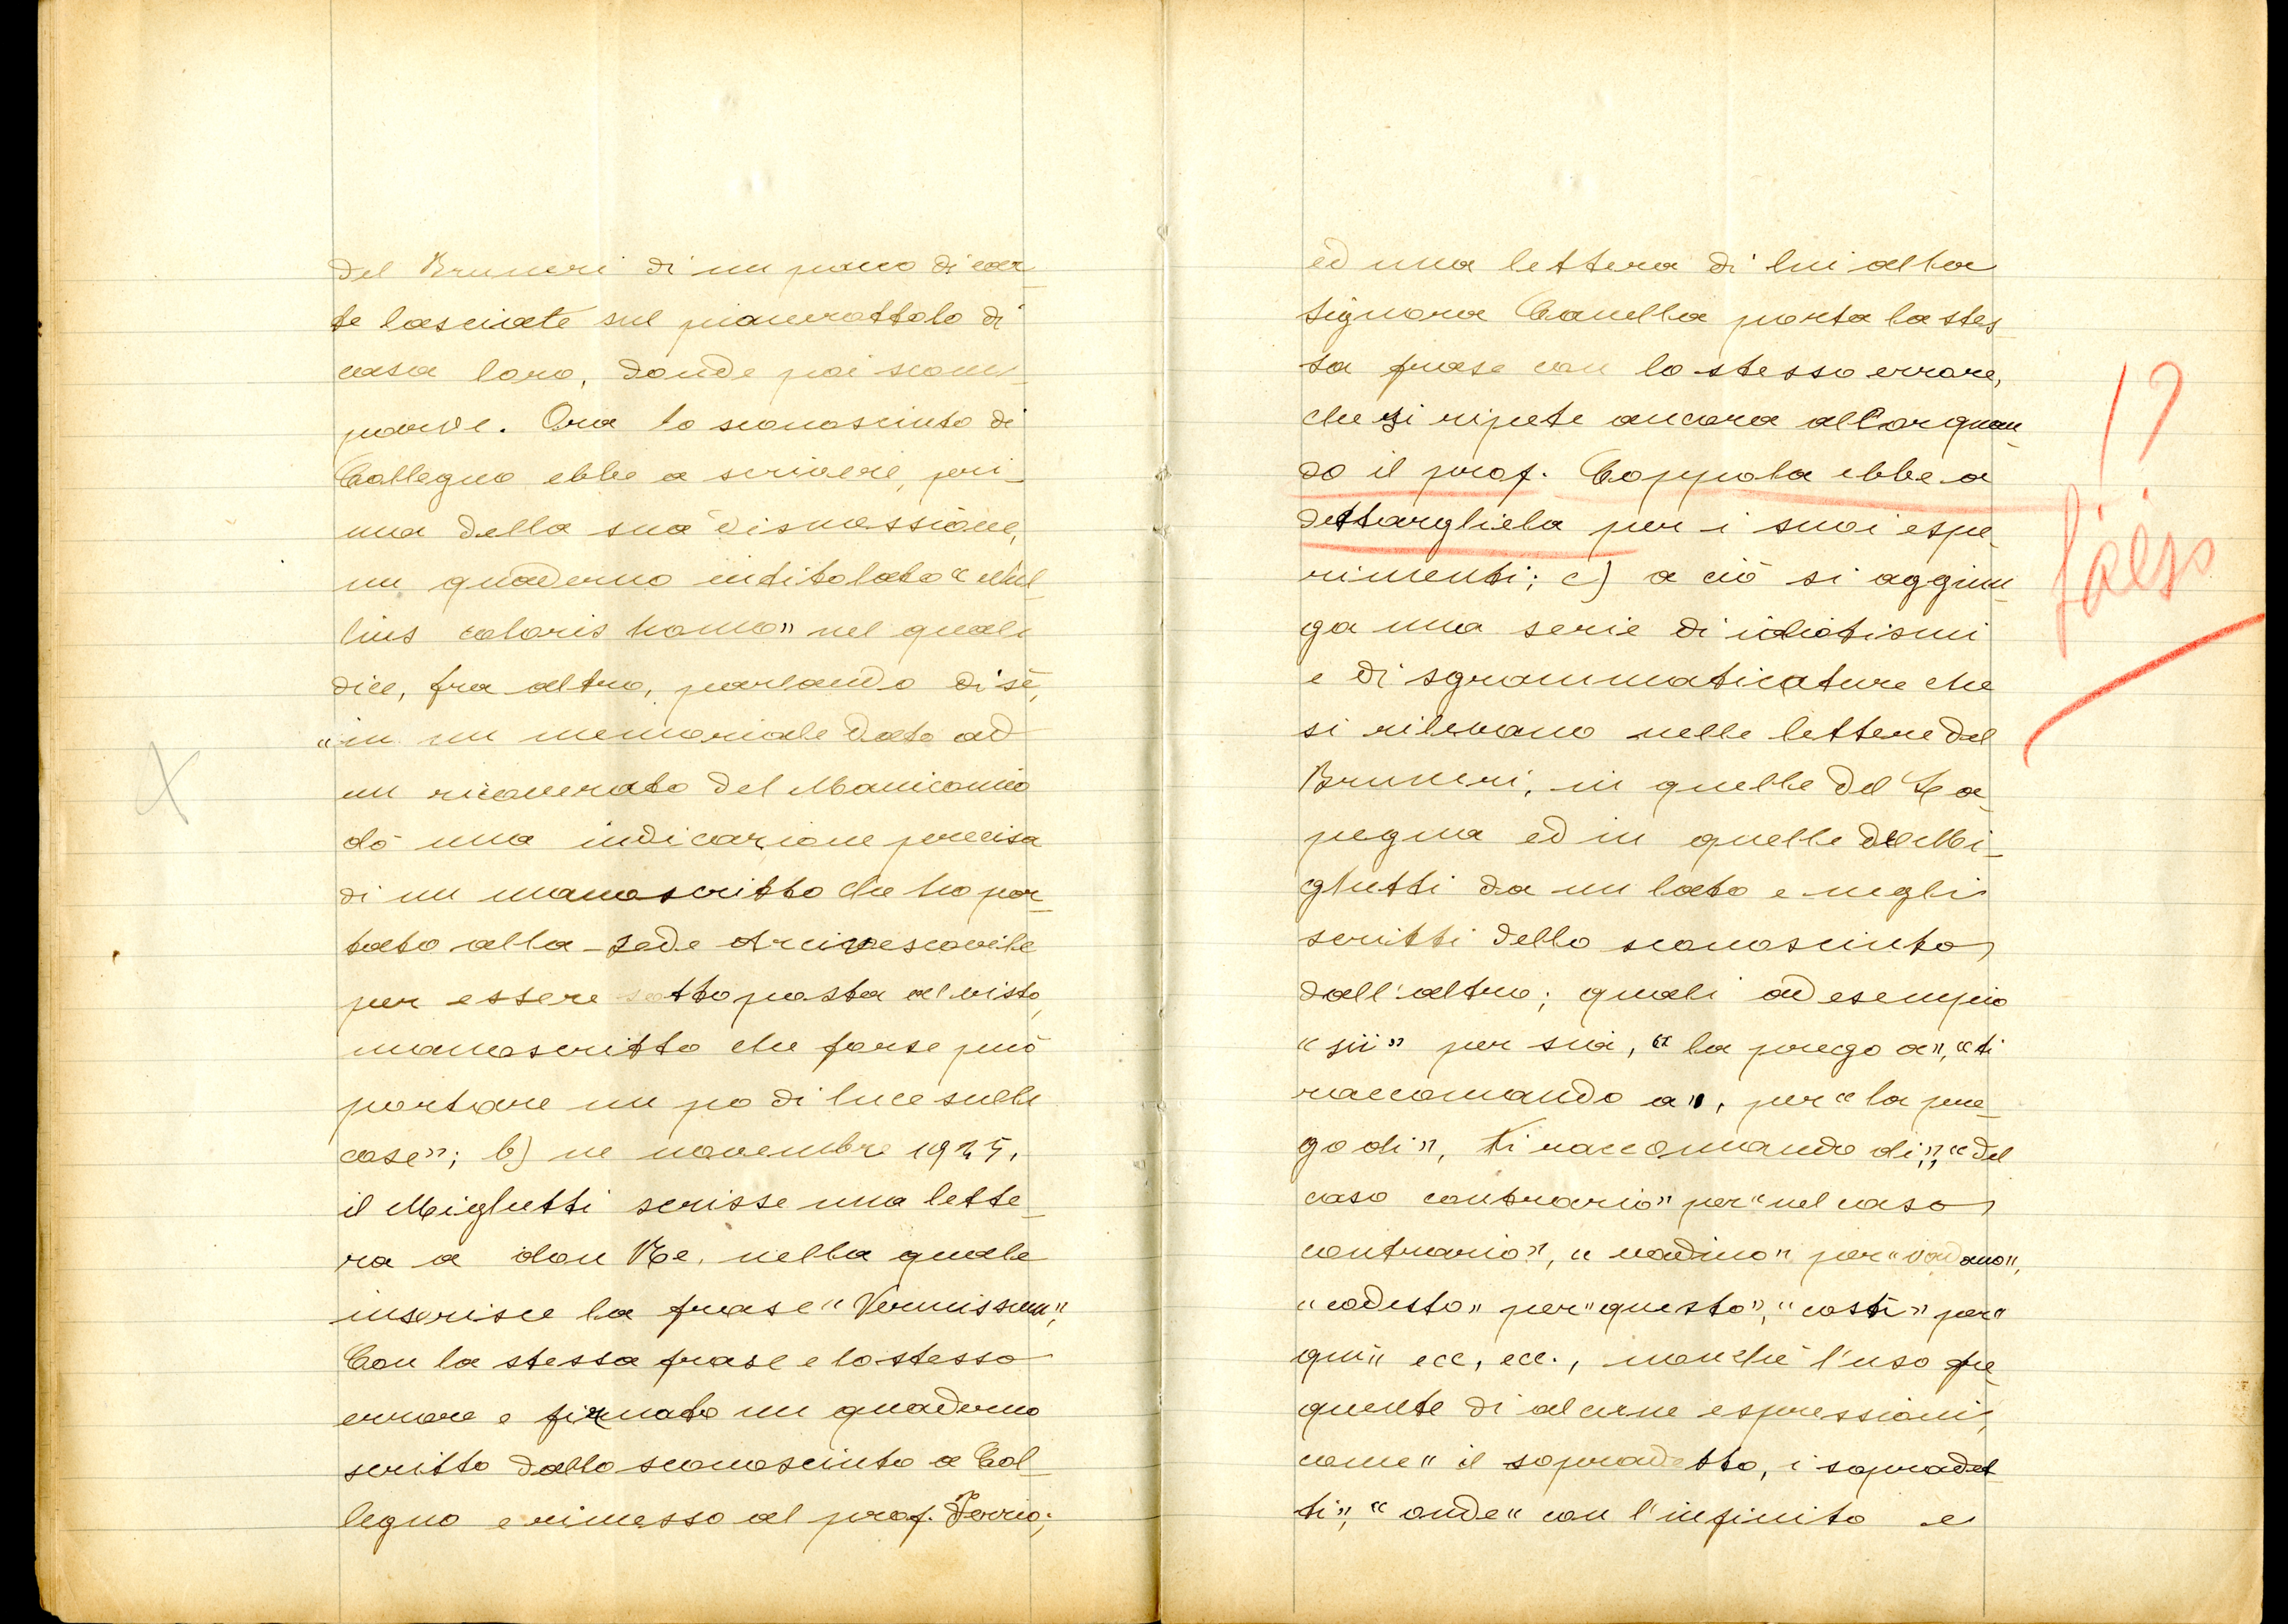 del Bruneri di un pacco di car
te lasciate sul pianerottolo di
casa loro, donde poi scom
parve. Ora lo sconosciuto di
Collegno ebbe a scrivere, pri
ma della sua dismessione,
un quaderno intitolato "Nul
lius coloris homo" nel quale
dice, fra altro, parlando di sè,
"in un memoriale dato ad
un ricoverato del Manicomio
dò una indicazione precisa
di un manoscritto che ho por
tato alla Sede Arcivescovile
per essere sottoposta al visto,
manoscritto che forse può
portare un po di luce sulle
cose"; b) ne novembre 1925,
il Mighetti scrisse una lette
ra a don Re, nella quale
inserisce la frase "Vermissum",
Con la stessa frase e lo stesso
errore e firmato un quaderno
scritto dallo sconosciuto a Col
legno e rimesso al prof. Ferrio;
ed una lettera di lui alla
signora Canella porta la stes
sa frase con lo stesso errore,
che si ripete ancora allorquan
do il prof. Coppola ebbe a
dettargliela per i suoi espe
rimenti; c) a ciò si aggiun
ga una serie di idiotismi
e di sgrammaticature che
si rilevano nelle lettere del
Bruneri, in quelle del La
pegna ed in quelle del Mi
ghetti da un lato e negli
scritti dello sconosciuto
dall'altro; quali ad esempio
"sii" per sia, "la prego a", "ti
raccomando a", per "la pre
go di", ti raccomando di", "del
caso contrario" per "nel caso
contrario", "vadino" per "vadano",
"codesto" per "questo", "costì" per "
qui" ecc, ecc., nonchè l'uso fre
quente di alcune espressioni,
come "il sopradetto, i sopradet
ti", "onde" con l'infinito e
!?
falso